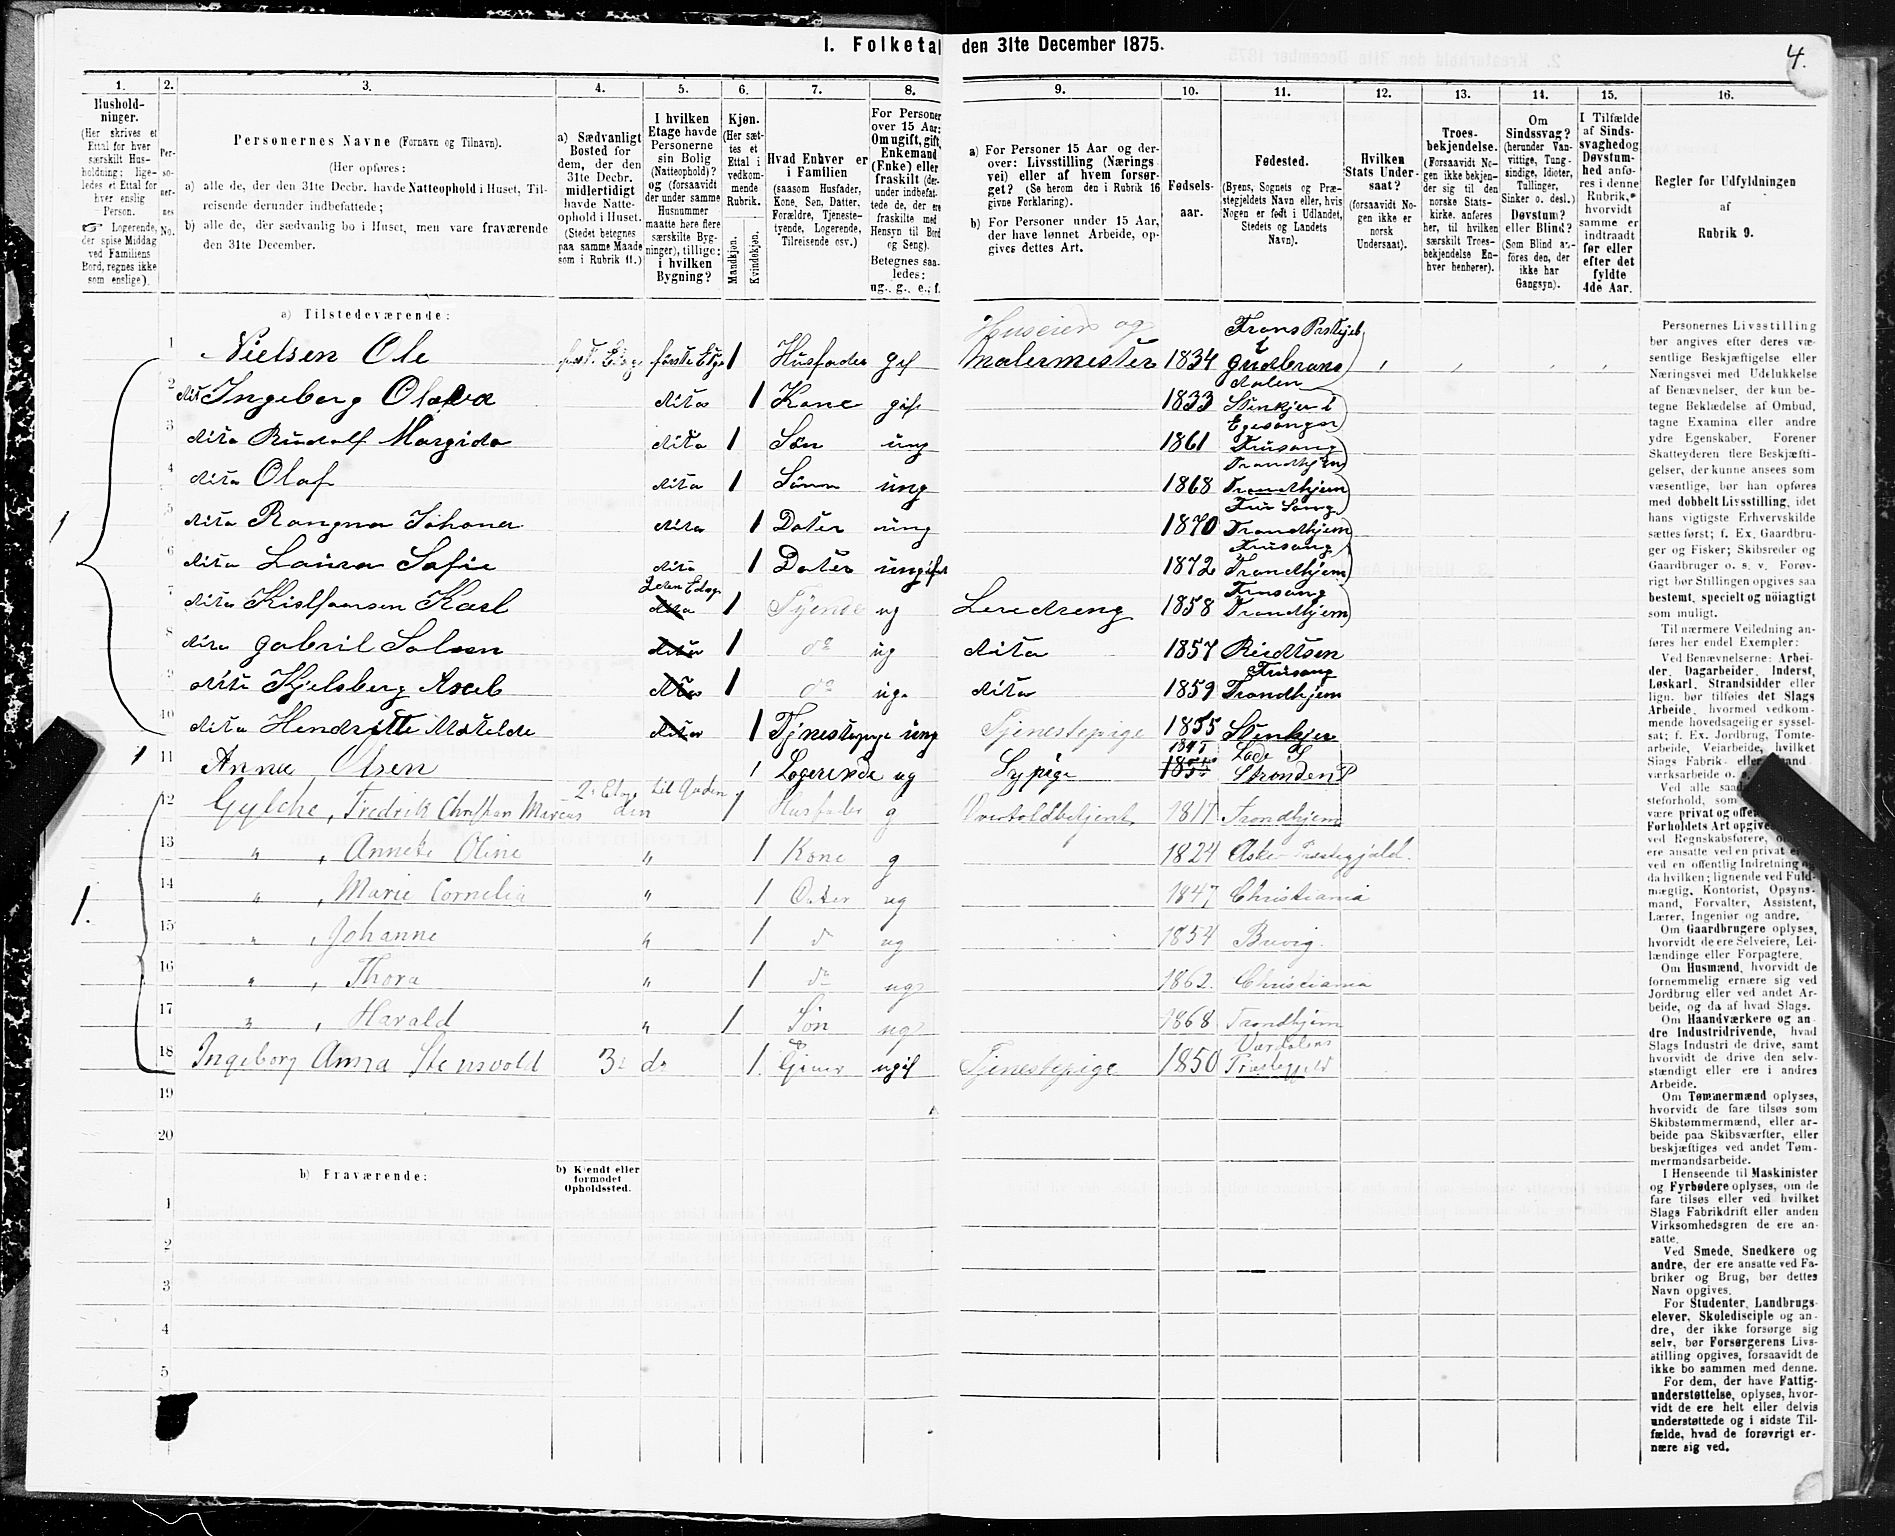 4.
1. Folketal den 31te December 1875.
1. 2. 3. 4. 5. 6. 7. 8. 9. 10. 11. 12. 13. 14. 15. 16.
Hushold-
ninger.
(Her skrives et
Ettal for hver
særskilt Hus-
holdning; lige-
ledes et Ettal for
hver enslig
Person.
☞ Logerende,
der spise Middag
ved Familiens
Bord, regnes ikke
som enslige).
Per-
so-
ner-
nes
No.
Personernes Navne (Fornavn og Tilnavn).
(Her opføres:
a) alle de, der den 31te Decbr. havde Natteophold i Huset, Til-
reisende derunder indbefattede;
b) alle de, der sædvanlig bo i Huset, men vare fraværende
den 31te December.
a) Sædvanligt
Bosted for
dem, der den
31te Decbr.
midlertidigt
havde Natte-
ophold i Huset.
(Stedet betegnes
paa samme Maade
som i Rubrik 11.)
I hvilken
Etage havde
Personerne
sin Bolig
(Natteophold)?
og (forsaavidt
der under samme
Husnummer
maatte høre flere
særskilte Byg-
ninger), tillige:
i hvilken
Bygning?
Kjøn.
(Her sæt-
tes et
Ettal i
vedkom-
mende
Rubrik.
Mandkjøn.
Kvindekjøn.
Hvad Enhver er
i Familien
(saasom Husfader,
Kone, Søn, Datter,
Forældre, Tjeneste-
tyende, Logerende,
Tilreisende osv.)
For Personer
over 15 Aar:
Om ugift, gift,
Enkemand
(Enke) eller
fraskilt (der-
under indbefat-
tede de, der ere
fraskilte med
Hensyn til Bord
og Seng).
Betegnes saa-
ledes:
ug., g., e., f.
a) For Personer 15 Aar og der-
over: Livsstilling (Nærings
vei) eller af hvem forsør-
get? (Se herom den i Rubrik 16
givne Forklaring).
b) For Personer under 15 Aar,
der have lønnet Arbeide, op-
gives dettes Art.
Fødsels-
aar.
Fødested.
(Byens, Sognets og Præ-
stegjeldets Navn eller, hvis
Nogen er født i Udlandet,
Stedets og Landets
Navn).
Hvilken
Stats Under-
saat?
(forsaavidt No-
gen ikke er
norsk
Undersaat).
Troes-
bekjendelse.
(Forsaavidt No-
gen ikke bekjen-
der sig til den
norske Stats-
kirke, anføres
her, til hvilken
særskilt Troes-
bekjendelse En-
hver henhører).
Om
Sindssvag?
(herunder Van-
vittige, Tung-
sindige, Idioter,
Tullinger,
Sinker o. desl.)
Døvstum?
eller Blind?
(Som Blind an-
føres den, der
ikke har
Gangsyn).
I Tilfælde
af Sinds-
svaghed og
Døvstum-
hed anfø-
res i denne
Rubrik,
hvorvidt
samme er
indtraadt
før eller
efter det
fyldte
4de Aar.
Regler for Udfyldningen
af
Rubrik 9.
a) Tilstedeværende:
1 Nielsen Ole første Etge 1 Husfader gif Huseier og Malermester 1834
2 dit Ingeberg Olava dita 1 Kone gif 1833 Stenkjer
3 dita Rudolf Margido dita 1 Søn ung 1861 Trondhjem
4 dita Olaf dita 1 Sönn ung 1868 Trondhjem
5 dita Rangna Johana dita 1 Dater ung 1870 Trondhjem
6 dita Laura Safie dita 1 Dater ungift 1872 Trondhjem
7 dita Karl dita 1 Tyende ug 1858 Trondhjem
8 dita Gabril dita 1 do ug dita 1857
9 dita Kjelsberg Axel dita 1 do ug dita 1859 Trondhjem
10 dita Matelde dita 1 ung Tjenestepige 1855 Stenkjer
11 Anna Olsen 1 Logerende ug Sypige 1855 Lade S Stranden P
12 Gylche, Fredrik Christian Marcus 2. Etage til Gaden 1 Husfader g 1817 Trondhjem
13 " , Annete Oline " 1 Kone g 1824 Asker Præstegjeld.
14 " , Marie Cornelia " 1 Datter ug 1847 Christiania
15 " , Johanne " 1 d ug 1854 Brevig.
16 " , Thora " 1 do ug 1862. Christiania
17 " , Harald " 1 Søn ug 1868 Trondhjem
18 Ingeborg Anna Stensvold 3 do 1 ugif Tjenestepige 1850 Værdalens Præstegjeld
19
20
b) Fraværende:
b) Kjendt eller
formodet
Opholdssted.
1
2
3
4
5
Personernes Livsstilling
bør angives efter deres væ-
sentlige Beskjæftigelse eller
Næringsvei med Udelukkelse
af Benævnelser, der kun be-
tegne Beklædelse af Ombud,
tagne Examina eller andre
ydre Egenskaber. Forener
Skatteyderen flere Beskjæfti-
gelser, der kunne ansees som
væsentlige, bør han opføres
med dobbelt Livsstilling, idet
hans vigtigste Erhvervskilde
sættes først; f. Ex. Gaardbru-
ger og Fisker; Skibsreder og
Gaardbruger o. s. v. Forøv-
rigt bør Stillingen opgives saa
bestemt, specielt og nöiagtigt
som muligt.
Til nærmere Veiledning an-
føres her endel Exempler:
Ved Benævnelserne: Arbei-
der, Dagarbeider, Inderst,
Løskarl, Strandsidder eller
lign. bør tilføies det Slags
Arbeide, hvormed vedkom-
mende hovedsagelig er syssel-
sat; f. Ex. Jordbrug, Tomte-
arbeide, Veiarbeide, hvilket
Slags Fabrik- eller
værksarbeide o.
Ved alle
steforhold, som
være privat og
Forholdets Art
ved Regnskabsførere,
ere ansatte ved en privat
ved en offentlig Indretning og
da hvilken; lignende ved Fuld-
mægtig, Kontorist, Opsyns-
mand, Forvalter, Assistent,
Lærer, Ingeniør og andre.
Om Gaardbrugere oplyses,
hvorvidt de ere Selveiere, Lei-
lændinge eller Forpagtere.
Om Husmænd, hvorvidt de
fornemmelig ernære sig ved
Jordbrug eller ved andet Ar-
beide, og da af hvad Slags.
Om Haandværkere og an-
dre Industridrivende, hvad
Slags Industri de drive, samt
hvorvidt de drive den selv-
stændigt eller ere i andres
Arbeide.
Om Tømmermænd oplyses,
hvorvidt de fare tilsøs som
Skibstømmermænd, eller ar-
beide paa Skibsværfter, eller
beskjæftiges ved andet Tøm-
mermandsarbeide.
I Henseende til Maskinister
og Fyrbødere oplyses, om de
fare tilsøs eller ved hvilket
Slags Fabrikdrift eller anden
Virksomhedsgren de ere an-
satte.
Ved Smede, Snedkere og
andre, der ere ansatte ved Fa-
briker og Brug, bør dettes
Navn opgives.
For Studenter, Landbrugs-
elever, Skoledisciple og an-
dre, der ikke forsørge sig
selv, bør Forsørgerens Livs-
stilling opgives, forsaavidt de
ikke bo sammen med denne.
For dem, der have Fattig-
understøttelse, oplyses, hvor-
vidt de ere helt eller delvis
understøttede og i sidste Til-
fælde, hvad de forøvrigt er-
nære sig ved.